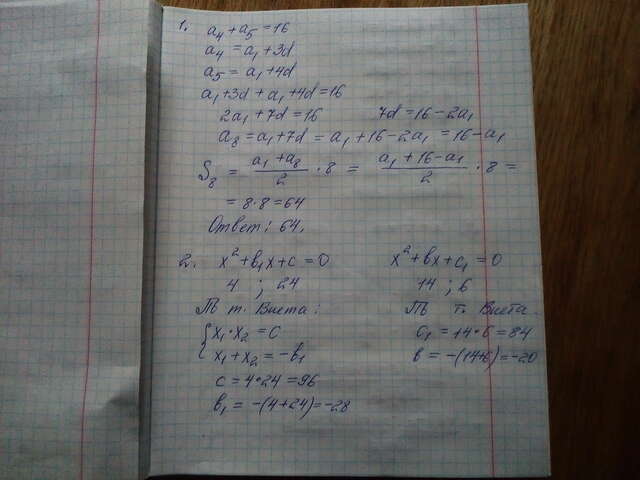 1. a₄ + a₅ = 16
a₄ = a₁ + 3d
a₅ = a₁ + 4d
a₁ + 3d + a₁ + 4d = 16
2a₁ + 7d = 16 7d = 16 - 2a₁
a₈ = a₁ + 7d = a₁ + 16 - 2a₁ = 16 - a₁
S₈ = (a₁ + a₈)/2 · 8 = (a₁ + 16 - a₁)/2 · 8 =
= 8 · 8 = 64
Ответ: 64.
2. x² + b₁x + c = 0 x² + bx + c₁ = 0
4 ; 24 14 ; 6
По т. Виета: По т. Виета
{x₁ · x₂ = c c₁ = 14 · 6 = 84
x₁ + x₂ = -b₁ b = -(14+6) = -20
c = 4 · 24 = 96
b₁ = -(4 + 24) = -28